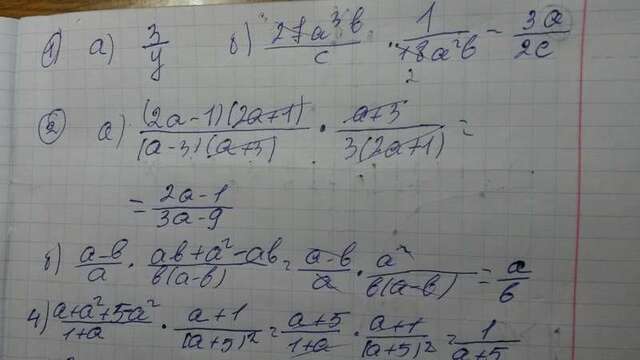 1) а) 3/y б) 27a³b/c · 1/18a²b = 3a/2c
2) а) (2a-1)(2a+1)/(a-3)(a+3) · a+3/3(2a+1) =
= 2a-1/3a-9
б) a-b/a · ab+a²-ab/b(a-b) = a-b/a · a²/b(a-b) = a/b
4) a+a²+5a²/1+a · a+1/(a+5)² = a+5/1+a · a+1/(a+5)² = 1/a+5